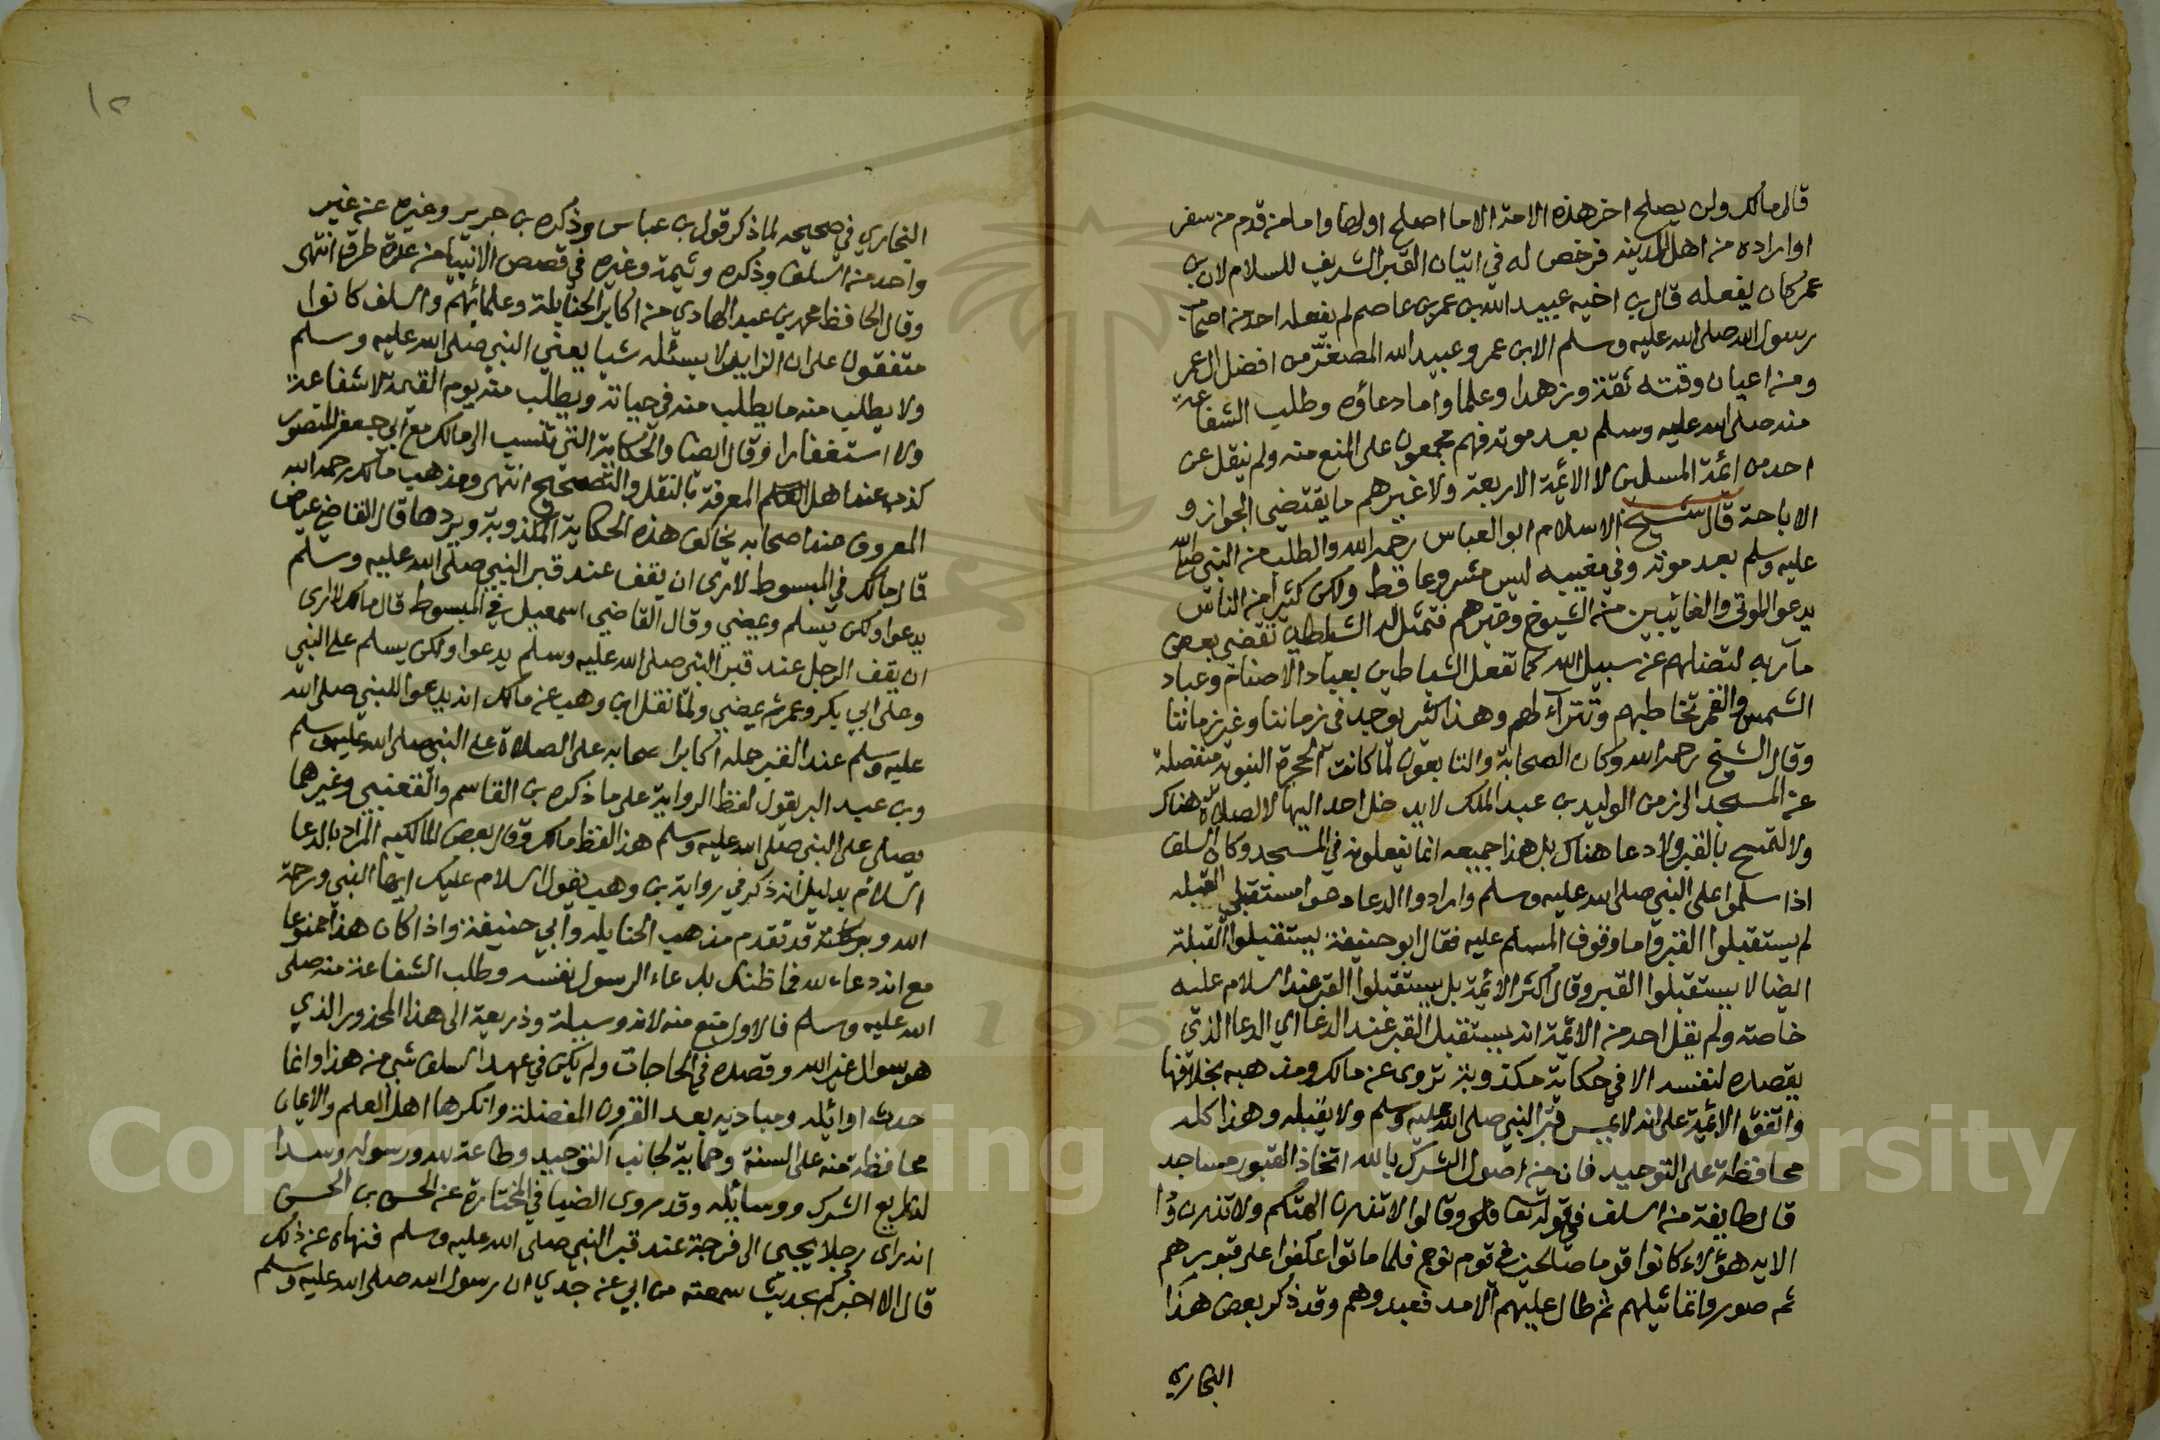 قال مالك ولن يصلح اخر هذه الامة الا ما اصلح اولها واما من قدم من سفر
او اراده من اهل المدينه فرخص له في اتيان القبر الشريف للسلام لان بن
عمر كان يفعله قال بن اخيه عبيد الله بن عمر بن عاصم لم يفعله احد من اصحاب
رسول الله صلى الله عليه وسلم الا بن عمر وعبيد الله المصغر من افضل ال عمر
ومن اعيان وقته ثقة وزهدا وعلما واما دعاؤه وطلب الشفاعة
منه صلى الله عليه وسلم بعد موته فهم مجمعون على المنع منه ولم ينقل عن
احد من ائمة المسلمين لا الائمة الاربعة ولا غيرهم ما يقتضي الجواز و
الاباحة قال شيخ الاسلام ابو العباس رحمه الله والطلب من النبي صلى الله
عليه وسلم بعد موته وفي مغيبه ليس مشروعا قط ولكن كثير من الناس
يدعوا الموتى والغائبين من الشيوخ وغيرهم فتمثل له الشياطين تقضي بعض
مآربه لتضلهم عن سبيل الله كما تفعل الشياطين بعباد الاصنام وعباد
الشمس والقمر تخاطبهم وتترآء لهم وهذا كثير يوجد في زماننا وغير زماننا
وقال الشيخ رحمه الله وكان الصحابة والتابعون لما كانت الحجرة النبوية منفصلة
عن المسجد الى زمن الوليد بن عبد الملك لا يدخل احد اليها لا لصلاة هناك
ولا لتمسح بالقبر ولا دعا هناك بل هذا جميعه انما يفعلونه في المسجد وكان السلف
اذا سلموا على النبي صلى الله عليه وسلم وارادوا الدعاء دعوا مستقبلي القبله
لم يستقبلوا القبر واما وقوف المسلم عليه فقال ابو حنيفة يستقبلوا القبلة
ايضا لا يستقبلوا القبر وقال اكثر الائمة بل يستقبلوا القبر عند السلام عليه
خاصه ولم يقل احد من الائمة انه يستقبل القبر عند الدعا اي الدعا الذي
يقصده لنفسه الا في حكاية مكذوبة تروى عن مالك ومذهبه بخلافها
واتفق الائمة على انه لا يمس قبر النبي صلى الله عليه وسلم ولا يقبله وهذا كله
محافظة على التوحيد فان من اصول الشرك بالله اتخاذ القبور مساجد
قال طايفة من السلف في قوله تعا وقالوا لا تذرن الهتكم ولا تذرن ودا
الايه هؤلاء كانوا قوما صالحين في قوم نوح فلما ماتوا عكفوا على قبورهم
ثم صوروا تماثيلهم ثم طال عليهم الامد فعبدوهم وقد ذكر بعض هذا
البخاري
١٢
البخاري في صحيحه لما ذكر قول بن عباس وذكره بن جرير وغيره عن غير
واحد من السلف وذكره وثيمة وغيره في قصص الانبياء من عدة طرق انتهى
وقال الحافظ محمد بن عبد الهادي من اكابر الحنابلة وعلمائهم والسلف كانوا
متفقون على ان الزاير لا يسئله شيا يعني النبي صلى الله عليه وسلم
ولا يطلب منه ما يطلب منه في حياته ويطلب منه يوم القيمة لا شفاعة
ولا استغفارا وقال ايضا والحكاية التي تنسب الى مالك مع ابي جعفر المنصور
كذب عند اهل العلم المعرفة بالنقل والتصحيح انتهى ومذهب مالك رحمه الله
المعروف عند اصحابه يخالف هذه الحكاية المكذوبة ويردها قال القاضي عياض
قال مالك في المبسوط لا ارى ان يقف عند قبر النبي صلى الله عليه وسلم
يدعوا ولكن يسلم ويمضي وقال القاضي اسمعيل في المبسوط قال مالك لا ارى
ان يقف الرجل عند قبر النبي صلى الله عليه وسلم يدعوا ولكن يسلم على النبي
وعلى ابي بكر وعمر ثم يمضي ولما نقل ابن وهب عن مالك انه يدعوا للنبي صلى الله
عليه وسلم عند القبر حمله اكابر اصحابه على الصلاة على النبي صلى الله عليه وسلم
وبن عبد البر يقول لفظ الرواية على ما ذكره بن القاسم والقعنبي وغيرهما
يصلي على النبي صلى الله عليه وسلم هذا لفظ مالك وقال بعض المالكيه المراد بالدعا
السلام بدليل انه ذكر في رواية بن وهب يقول السلام عليك ايها النبي ورحمة
الله وبركاته قد تقدم مذهب الحنابله وابي حنيفة واذا كان هذا ممنوعا
مع انه دعاء لله فما ظنك بدعاء الرسول نفسه وطلب الشفاعة منه صلى
الله عليه وسلم فالاول منع منه لانه وسيلة وذريعة الى هذا المحذور الذي
هو سوال غير الله وقصده في الحاجات ولم يكن في عهد السلف شي من هذا وانما
حدث اوائله ومباديه بعد القرون المفضلة وانكرها اهل العلم والايمان
محافظة منه على السنة وحماية لجانب التوحيد وطاعة لله ورسوله وسدا
لذرايع الشرك ووسايله وقد روى الضيا في المختارة عن الحسن بن الحسن
انه راى رجلا يجي الى فرجة عند قبر النبي صلى الله عليه وسلم فنهاه عن ذلك
قال الا اخبركم بحديث سمعته من ابي عن جدي ان رسول الله صلى الله عليه وسلم
Copyright © King Saud University
195